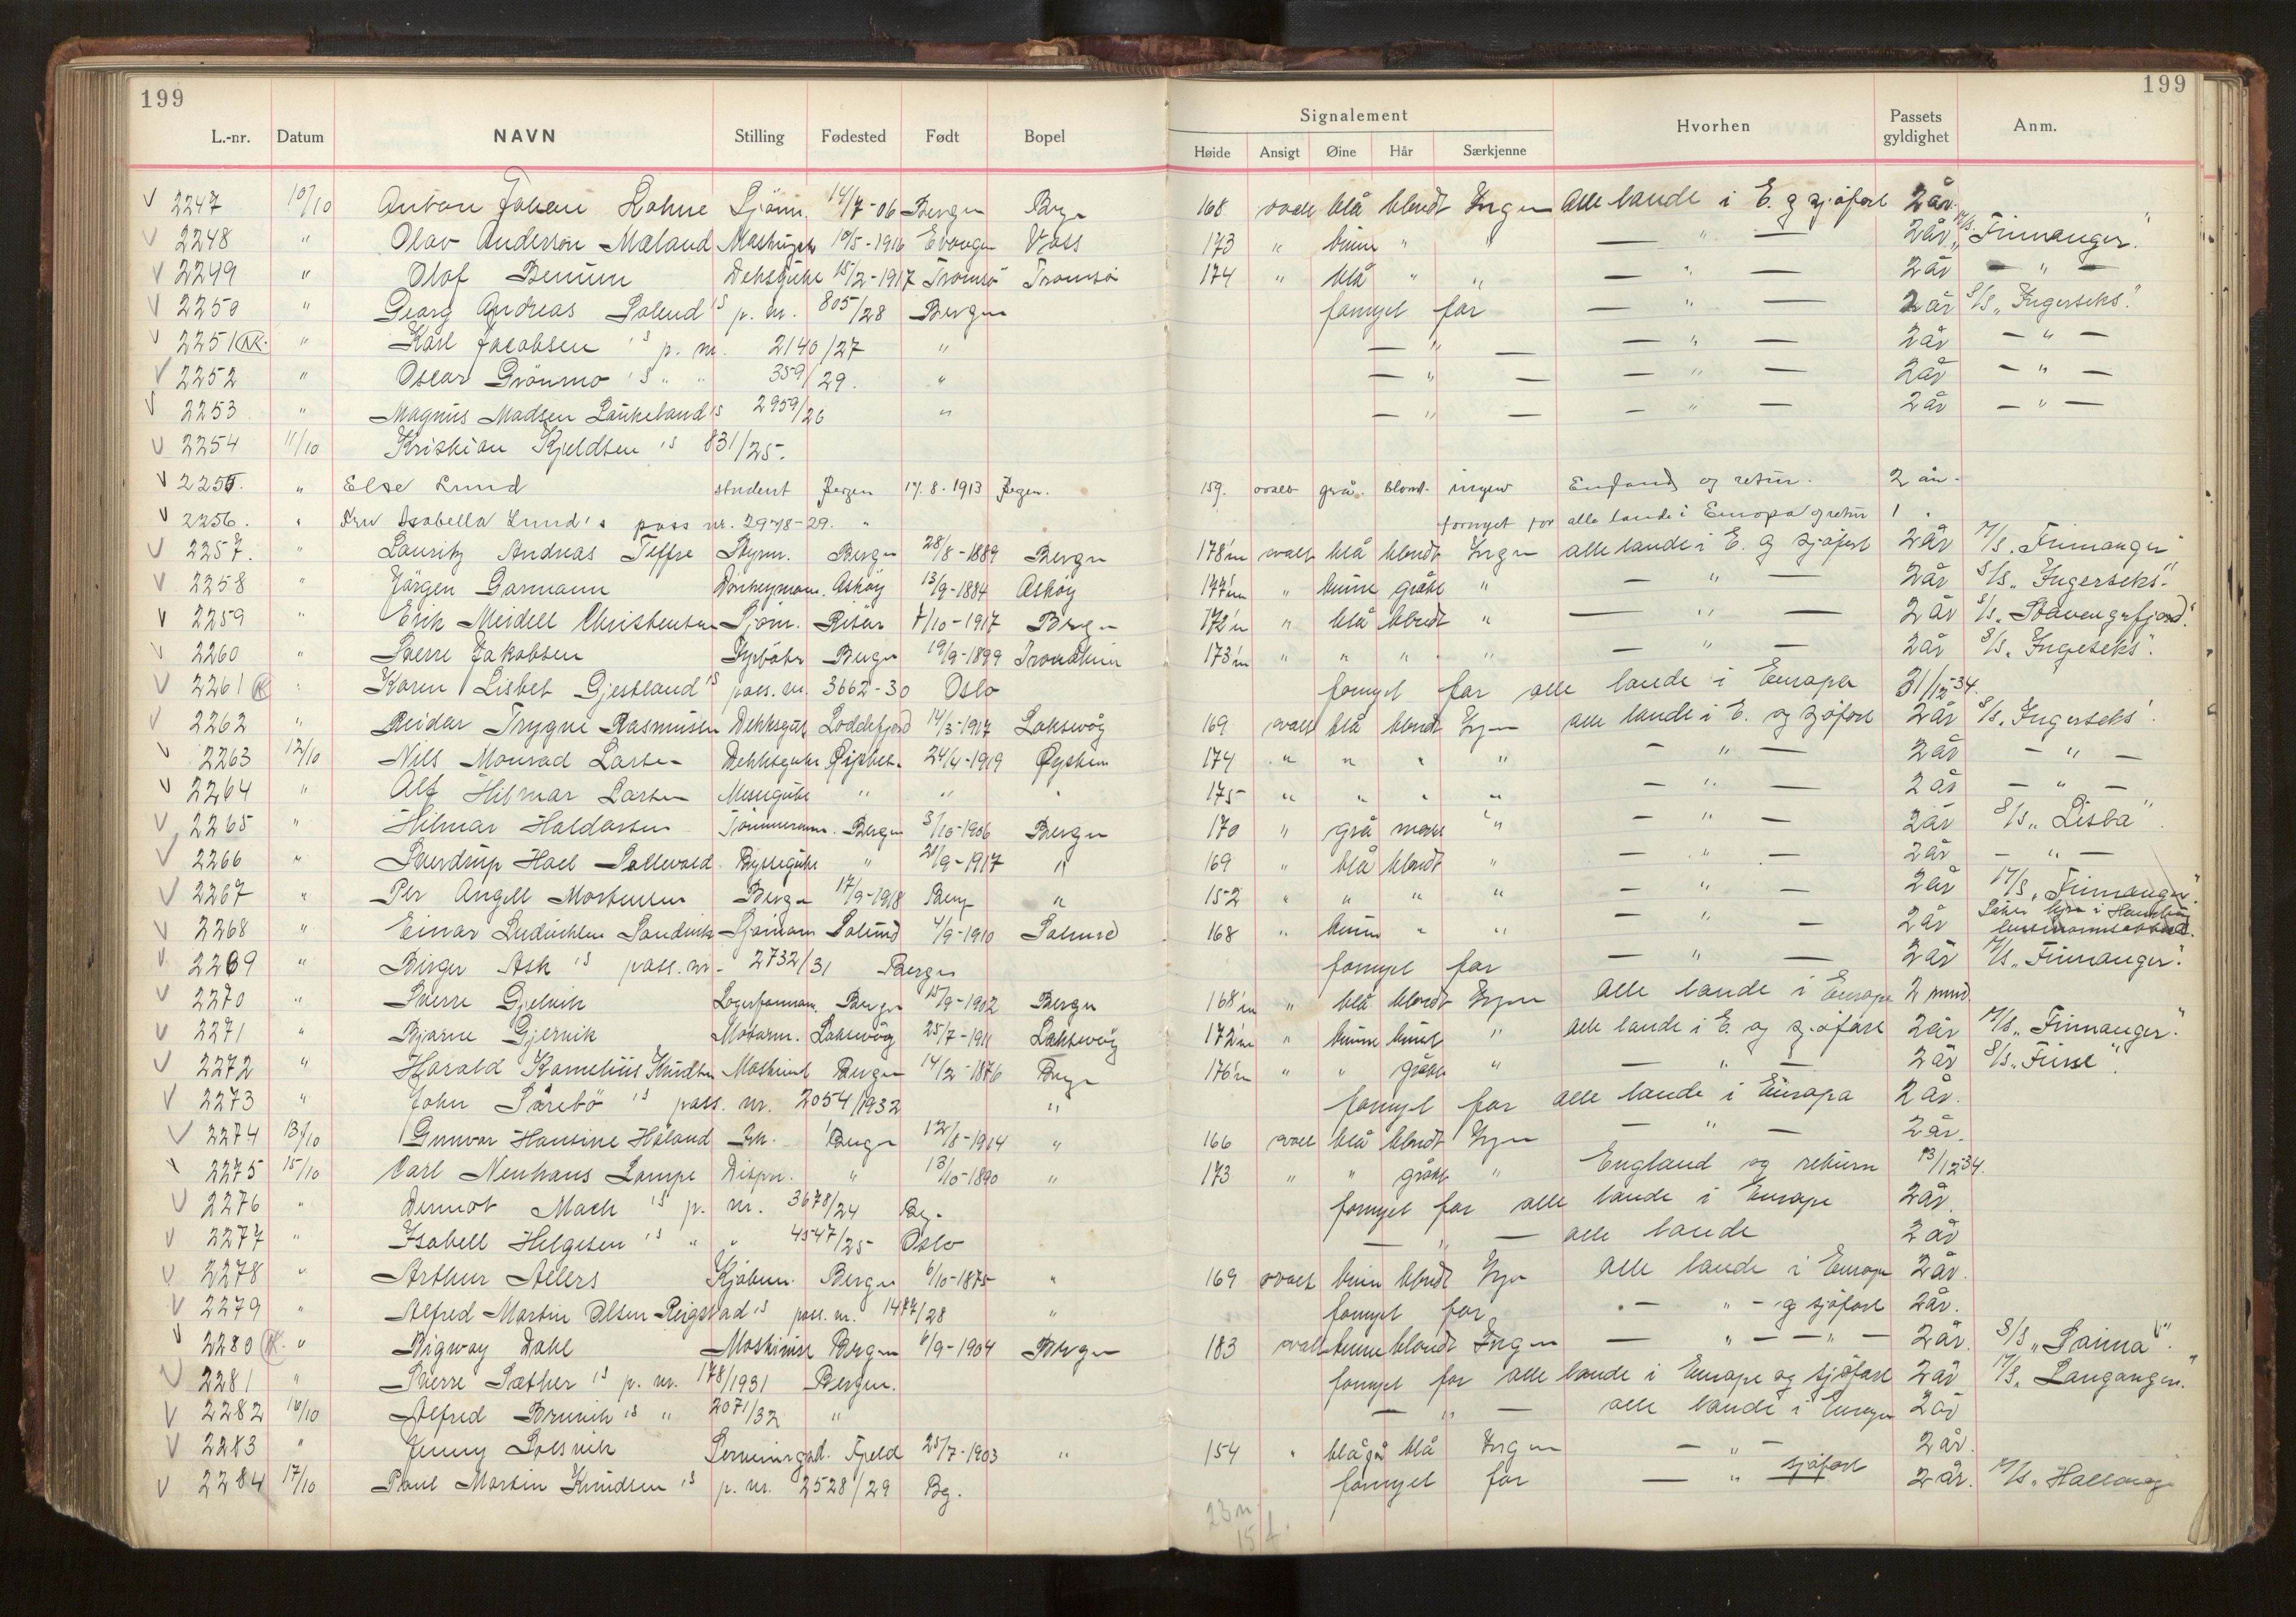 199 199
Signalement
L.-nr. Datum NAVN Stilling Fødested Født Bopel Høide Ansigt Øine Hår Særkjenne Hvorhen Passets gyldighet Anm.
V 2247 10/10 Anton Johan 14/7-06 Bergen 168 ovalt blå blondt Ingen alle lande i E. og sjöfart 2 år
V 2248 " Olav Anderson Mæland 10/5-1916 Evanger Voss 173 " brune " " — " — 2 år M/S. "Finnanger".
V 2249 " Olaf Benum Deksgutt 15/2-1917 Tromsö Tromsö 174 " blå " " — " — 2 år — " —
V 2250 " Georg Andreas Solend's p. nr. 805/28 Bergen fornyet for — " — 2 år S/S. "Ingerseks".
V 2251 NK. " Karl Jacobsen 's p. nr. 2140/27 " — " — — " — 2 år — " —
V 2252 " Oscar Grönmo 's " " 359/29. " — " — — " — 2 år — " —
V 2253 " Magnus Madsen Laukeland's 2959/26 " — " — — " — 2 år — " —
V 2254 11/10 Kristian Kjeldsen 's 831/25.
V 2255. " Else Lund student Bergen 17.8.1913 Bergen. 159. ovalt grå. blond. ingen England og retur. 2 år.
V 2256. " Fru Isabella Lund's pass nr. 2978-29. " fornyet for alle lande i Europa og retur 1 "
V 2257. " Lauritz Andreas Styrm. Bergen 28/8-1889 Bergen 178 ovalt blå blondt Ingen alle lande i E. og sjöfart 2 år M/S. "Finnanger"
V 2258 " Jörgen Garmann Donkeymann. Askøy 13/9-1884 Askøy 177 " brune gråbl " — " — 2 år S/S. "Ingerseks".
V 2259 " Erik Meidell Christensen Sjöm. Risör 7/10-1917 Bergen 172 " blå blondt " — " — 2 år S/S. "Stavangerfjord".
V 2260 " Sverre Jakobsen Fyrböter Bergen 19/9-1899 Trondheim 173 " " " " — " — 2 år S/S. "Ingerseks".
V 2261 K " Karen Lisbet Gjestland's pass. nr. 3662-30 Oslo fornyet for alle lande i Europa 31/12-34.
V 2262 " Reidar Trygve Rasmussen Dekksgutt Loddefjord 14/3-1917 Laksevåg 169 ovalt blå blondt Ingen alle lande i E. og sjöfart 2 år S/S. "Ingerseks".
V 2263 12/10 Nils Monrad Larsen Dekksgutt 24/4-1919 174 " " " " — " — 2 år — " —
V 2264 " Alf Hilmar Larsen Messegutt " " " 175 " " " " — " — 2 år — " —
V 2265 " Hilmar Haldorsen Tömmerm. Bergen 3/10-1906 Bergen 170 " grå mørk " — " — 2 år S/S. "Lisbå".
V 2266 " Sverdrup Hoel Byssegutt " 21/9-1917 " 169 " blå blondt " — " — 2 år — " —
V 2267 " Per Angell Mortensen Bergen 17/9-1918 Berg " 152 " " " " — " — 2 år M/S. "Finnanger".
V 2268 " Einar Sandvik Sjömann Solund 4/9-1910 Solund 168 " brune " " — " — 2 år Søker hyre i Hamburg
V 2269 " Birger Ask 's pass. nr. 2732/31 Bergen fornyet for — " — 2 år M/S. "Finnanger".
V 2270 " Sverre Gjelvik Lagerformann. Bergen 15/9-1902 Bergen 168 " blå blondt Ingen alle lande i Europa 2 mnd.
V 2271 " Bjarne Gjervik Motorm. Laksevåg 25/7-1911 Laksevåg 172 " brune brunt " alle lande i E. og sjöfart 2 år M/S. "Finnanger".
V 2272 " Harald Kornelius Knudsen Maskinist Bergen 14/2-1876 Bergen 176 " " gråbl " — " — 2 år S/S. "Finse".
V 2273 " John Sårebö 's pass. nr. 2054/1932 " fornyet for alle lande i Europa 2 år.
V 2274 13/10 Gunvor Hansine Håland Frk. Bergen 12/8-1914 " 166 ovalt blå blondt Ingen — " — 2 år.
V 2275 15/10 Carl Neuhaus Lampe Dispn. " 13/10-1890 " 173 " " gråbl " England og return 13/12-34.
V 2276 " Dermot Mack 's p. nr. 3678/24 Bg. fornyet for alle lande i Europa 2 år.
V 2277 " Isabell Helgesen 's " " 4547/25 Oslo — " — alle lande 2 år
V 2278 " Arthur Ahlers Kjöbm. Bergen 6/10-1875 " 169 ovalt brune blondt Ingen alle lande i Europa 2 år.
V 2279 " Alfred Martin Olsen Reigstad's pass. nr. 1477/28 " fornyet for — " — og sjöfart 2 år.
V 2280 K. " Sigvay Dahl Maskinist Bergen 6/9-1904 Bergen 183 ovalt brune blondt Ingen — " — — " — 2 år. S/S "Saima".
V 2281 " Sverre Sæther 's p. nr. 178/1931 Bergen. fornyet for alle lande i Europa og sjöfart 2 år M/S. "Langanger".
V 2282 16/10 Alfred Brunvik 's " 2071/32 " — " — alle lande i Europa 2 år
V 2283 " Jenny Solsvik Fjeld 25/7-1903 " 154 " blågrå blå Ingen — " — 2 år.
V 2284 17/10 Paul Martin Knudsen 's p. nr. 2528/29 Bg. fornyet for — " — sjöfart 2 år. M/S.
23 m.
15 f.